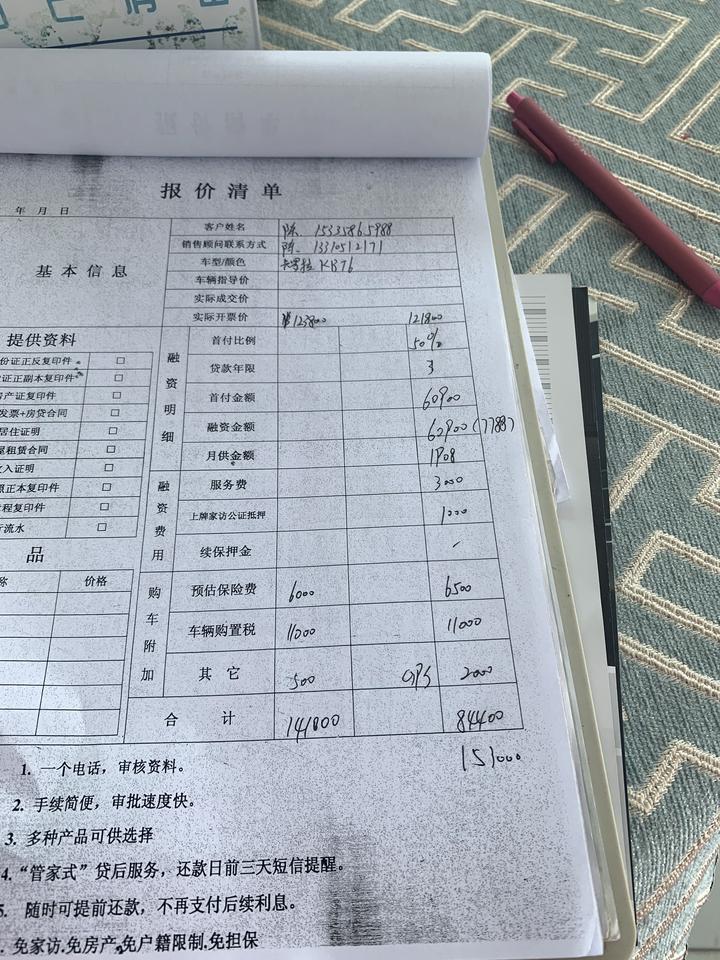 报价清单
年 月 日
基本信息
客户姓名 陈. 15335865988
销售顾问联系方式 陈. 13310512171
车型/颜色 卡罗拉
车辆指导价
实际成交价
实际开票价 ¥123800 121800
提供资料
份证正反复印件 □
证正副本复印件 □
产证复印件 □
发票+房贷合同 □
居住证明 □
租赁合同 □
入证明 □
照正本复印件 □
程复印件 □
流水 □
品
称 价格
融资明细
首付比例 50%
贷款年限 3
首付金额 60900
融资金额 60900 (7788)
月供金额 1908
融资费用
服务费 3000
上牌家访公证抵押 1000
续保押金
购车附加
预估保险费 6000 6500
车辆购置税 11000 11000
其它 500 GPS 2000
合计 141800 84400
151000
1. 一个电话，审核资料。
2. 手续简便，审批速度快。
3. 多种产品可供选择
4.“管家式”贷后服务，还款日前三天短信提醒。
5. 随时可提前还款，不再支付后续利息。
免家访.免房产.免户籍限制.免担保